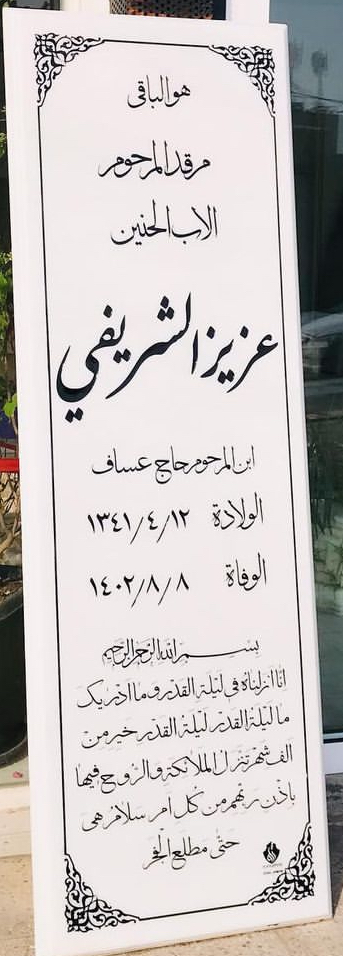 هو الباقی
مرقد المرحوم
الاب الحنین
عزیز الشریفي
ابن المرحوم حاج عساف
الولادة ١٣٤١/٤/١٢
الوفاة ١٤٠٢/٨/٨
بسم الله الرحمن الرحیم
انا انزلناه فی لیلة القدر و ما ادریک
ما لیلة القدر لیلة القدر خیر من
الف شهر تنزل الملائکة والروح فیها
باذن ربهم من کل امر سلام هی
حتی مطلع الفجر